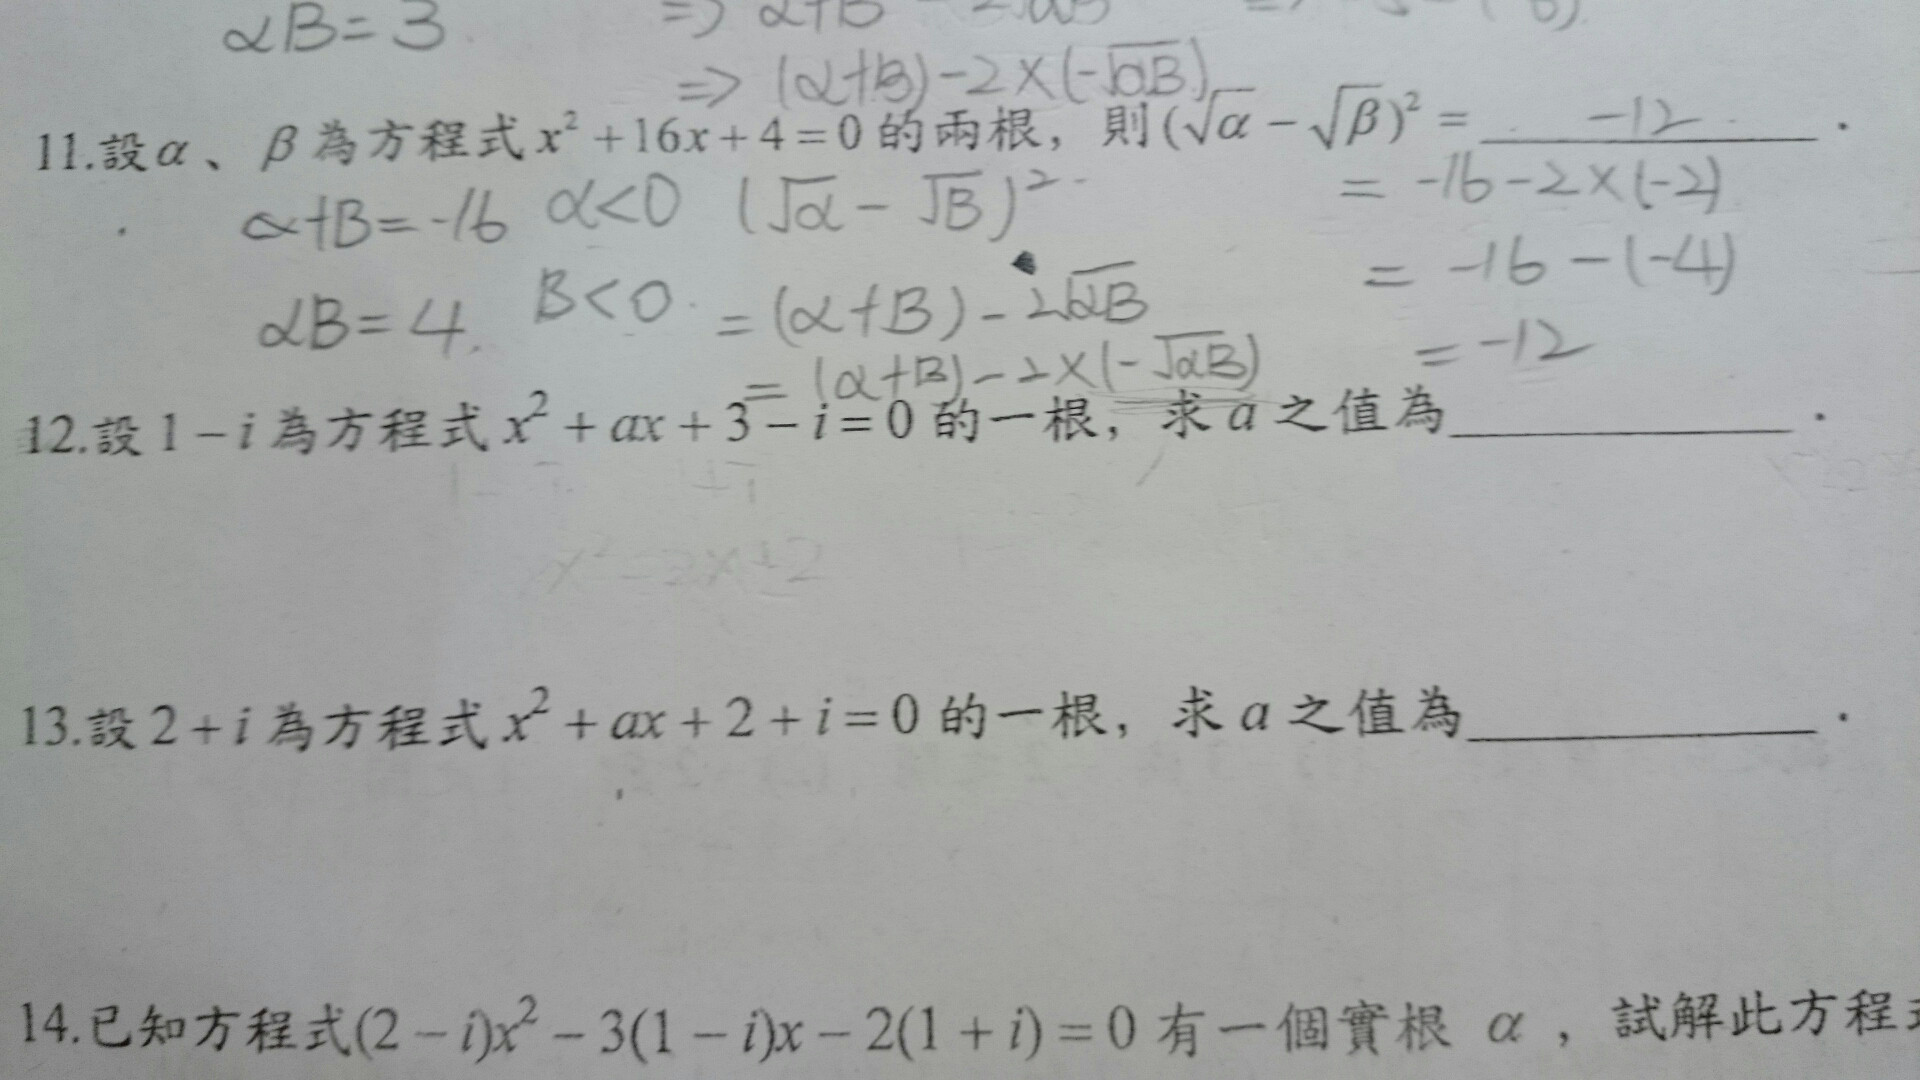 αB=3
=> (α+B)-2×(-√αB)
11.設α、β為方程式x²+16x+4=0的兩根，則(√α-√β)²= -12 .
α+B=-16 α<0 (√α-√B)² = -16-2×(-2)
αB=4. B<0. =(α+B)-2√αB = -16-(-4)
=(α+B)-2×(-√αB) =-12
12.設1-i為方程式x²+ax+3-i=0的一根，求a之值為 .
x²-2x+2
13.設2+i為方程式x²+ax+2+i=0的一根，求a之值為 .
14.已知方程式(2-i)x²-3(1-i)x-2(1+i)=0有一個實根 α ，試解此方程